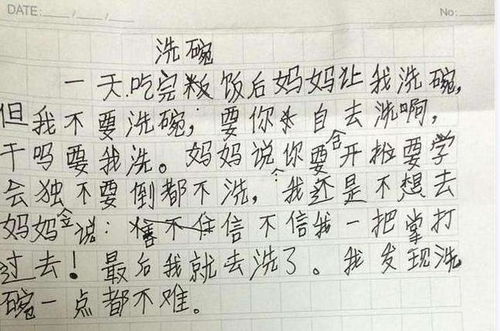 DATE: / / No:
洗碗
一天吃完饭后妈妈让我洗碗,
但我不要洗碗,要你自去洗啊,
干吗要我洗。妈妈说你要开始要学
会独不要倒都不洗,个我还是不想去
妈妈会说:信不信我一把掌打
过去!最后我就去洗了。我发现洗
碗一点都不难。